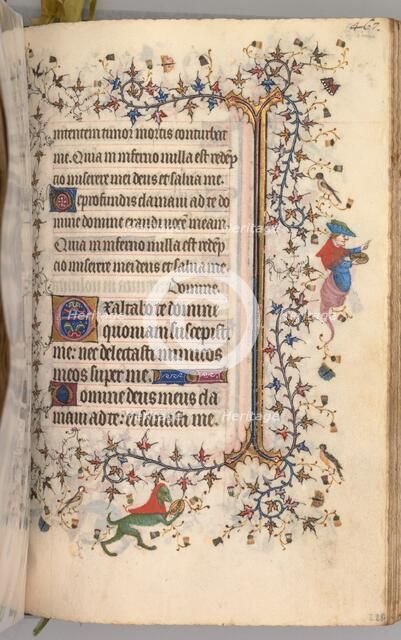 467.
intentem timor mortis conturbat
me. Quia in inferno nulla est redēp
cio miserere mei deus et salua me.
De profundis clamaui ad te do
mine domine exaudi uocem meam.
Quia in inferno nulla est redēp
cio miserere mei deus et salua me.
Domine.
Exaltabo te domine
quoniam suscepisti
me: nec delectasti inimicos
meos super me.
Domine deus meus cla
maui ad te: et sanasti me.
Heritage
Heritage
Heritage
Heritage